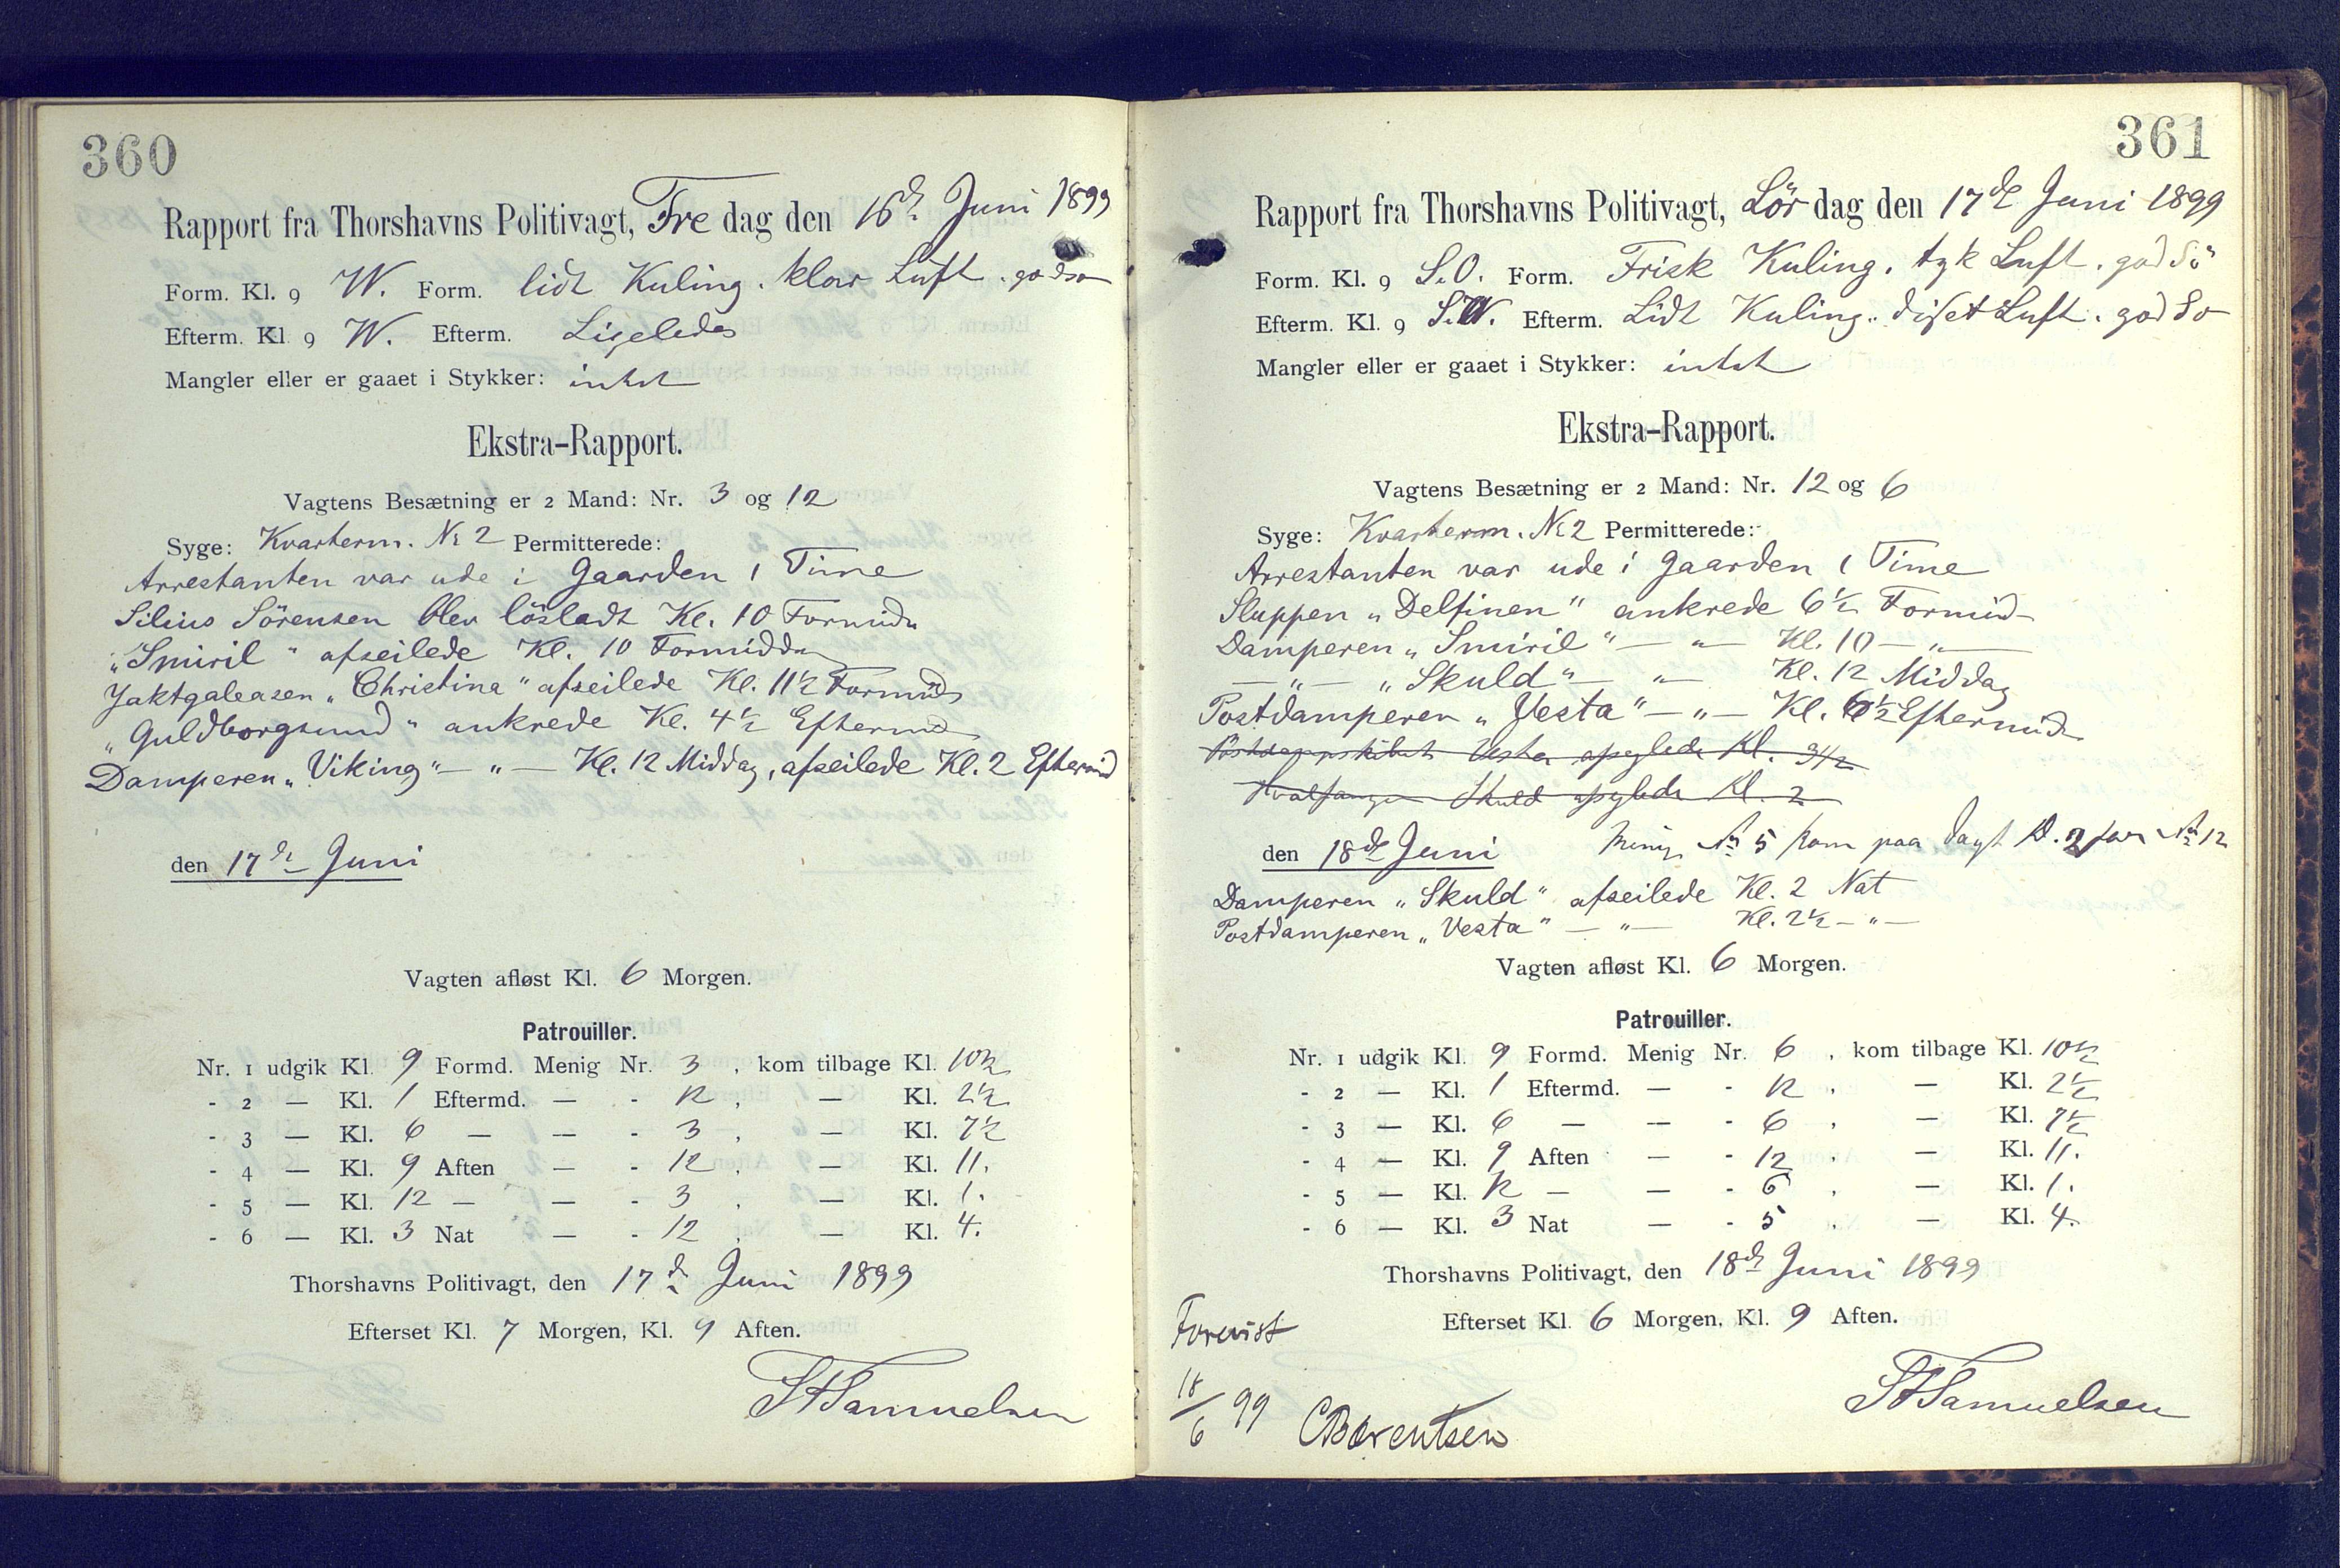 360
Rapport fra Thorshavns Politivagt, Fre dag den 16d. Juni 1899
Form. Kl. 9 W. Form. lidt Kuling. klar Luft. god So
Efterm. Kl. 9 W. Efterm. Ligeledes
Mangler eller er gaaet i Stykker: intet
Ekstra-Rapport.
Vagtens Besætning er 2 Mand: Nr. 3 og 12
Syge: Kvarterm. No 2 Permitterede:
Arrestanten var ude i Gaarden 1 Time
Silius Sörensen blev lösladt Kl. 10 Formidd
„Smiril" afseilede Kl. 10 Formidda
Jaktgaleasen „Christina" afseilede Kl. 11½ Formid
„Guldborgsund" ankrede Kl. 4½ Eftermd
Damperen „Viking" — „ — Kl. 12 Middag, afseilede Kl. 2 Eftermid
den 17de Juni
Vagten afløst Kl. 6 Morgen.
Patrouiller.
Nr. 1 udgik Kl. 9 Formd. Menig Nr. 3 , kom tilbage Kl. 10½
- 2 — Kl. 1 Eftermd. — - 12 , — Kl. 2½
- 3 — Kl. 6 — — - 3 , — Kl. 7½
- 4 — Kl. 9 Aften — - 12 , — Kl. 11.
- 5 — Kl. 12 — — - 3 , — Kl. 1.
- 6 — Kl. 3 Nat — - 12 , — Kl. 4.
Thorshavns Politivagt, den 17d. Juni 1899
Efterset Kl. 7 Morgen, Kl. 9 Aften.
Samuelsen
361
Rapport fra Thorshavns Politivagt, Lör dag den 17de Juni 1899
Form. Kl. 9 S.O. Form. Frisk Kuling. tyk Luft. god Sö
Efterm. Kl. 9 S.W. Efterm. Lidt Kuling. diset Luft. god So
Mangler eller er gaaet i Stykker: intet
Ekstra-Rapport.
Vagtens Besætning er 2 Mand: Nr. 12 og 6
Syge: Kvarterm. No 2 Permitterede:
Arrestanten var ude i Gaarden 1 Time
Sluppen „Delfinen" ankrede 6½ Formid
Damperen „Smiril" — „ — Kl. 10 — „ —
— „ — „Skuld" — „ — Kl. 12 Middag
Postdamperen „Vesta" — „ — Kl. 6½ Eftermid
Postdampskibet Vesta afseglede Kl. 3½
Hvalfanger Skuld afseglede Kl. 2
den 18de Juni Menig No 5 kom paa Vagt Kl. 2 for No 12
Damperen „Skuld" afseilede Kl. 2 Nat
Postdamperen „Vesta" — „ — Kl. 2½ — „ —
Vagten afløst Kl. 6 Morgen.
Patrouiller.
Nr. 1 udgik Kl. 9 Formd. Menig Nr. 6 , kom tilbage Kl. 10½
- 2 — Kl. 1 Eftermd. — - 12 , — Kl. 2½
- 3 — Kl. 6 — — - 6 , — Kl. 7½
- 4 — Kl. 9 Aften — - 12 , — Kl. 11.
- 5 — Kl. 12 — — - 6 , — Kl. 1.
- 6 — Kl. 3 Nat — - 5 , — Kl. 4.
Thorshavns Politivagt, den 18de Juni 1899
Efterset Kl. 6 Morgen, Kl. 9 Aften.
Samuelsen
Forevist
18/6 99 CBærentsen